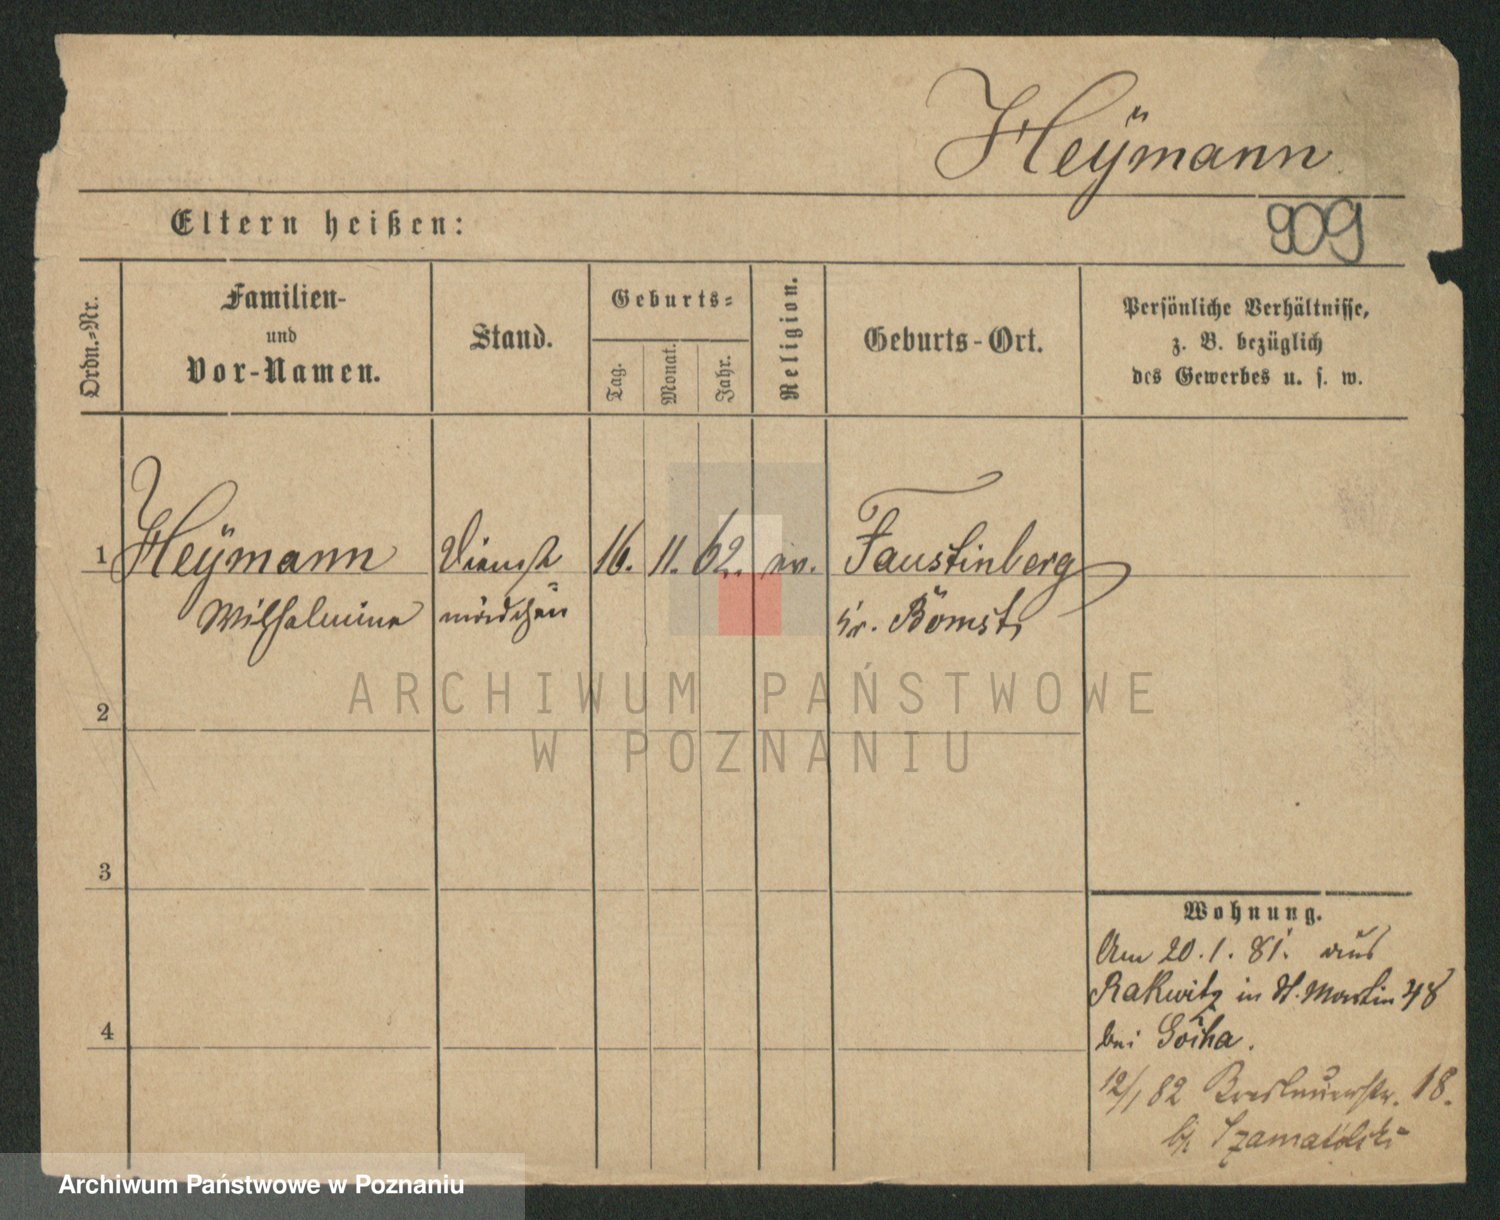 Heÿmann
909
Eltern heißen:
Ordn.-Nr.
Familien-
und
Vor-Namen.
Stand.
Geburts-
Tag.
Monat.
Jahr.
Religion.
Geburts-Ort.
Persönliche Verhältnisse,
z. B. bezüglich
des Gewerbes u. s. w.
1 Heÿmann Dienst 16. 11. 62. ev. Faustinberg
Wilhelmine mädchen Kr. Bomst
ARCHIWUM PAŃSTWOWE
W POZNANIU
2
3
4
Wohnung.
Am 20.1.81. aus
Rakwitz in St. Martin 48
bei
12/1 82 Breslauerstr. 18.
b/ Szamatólski
Archiwum Państwowe w Poznaniu